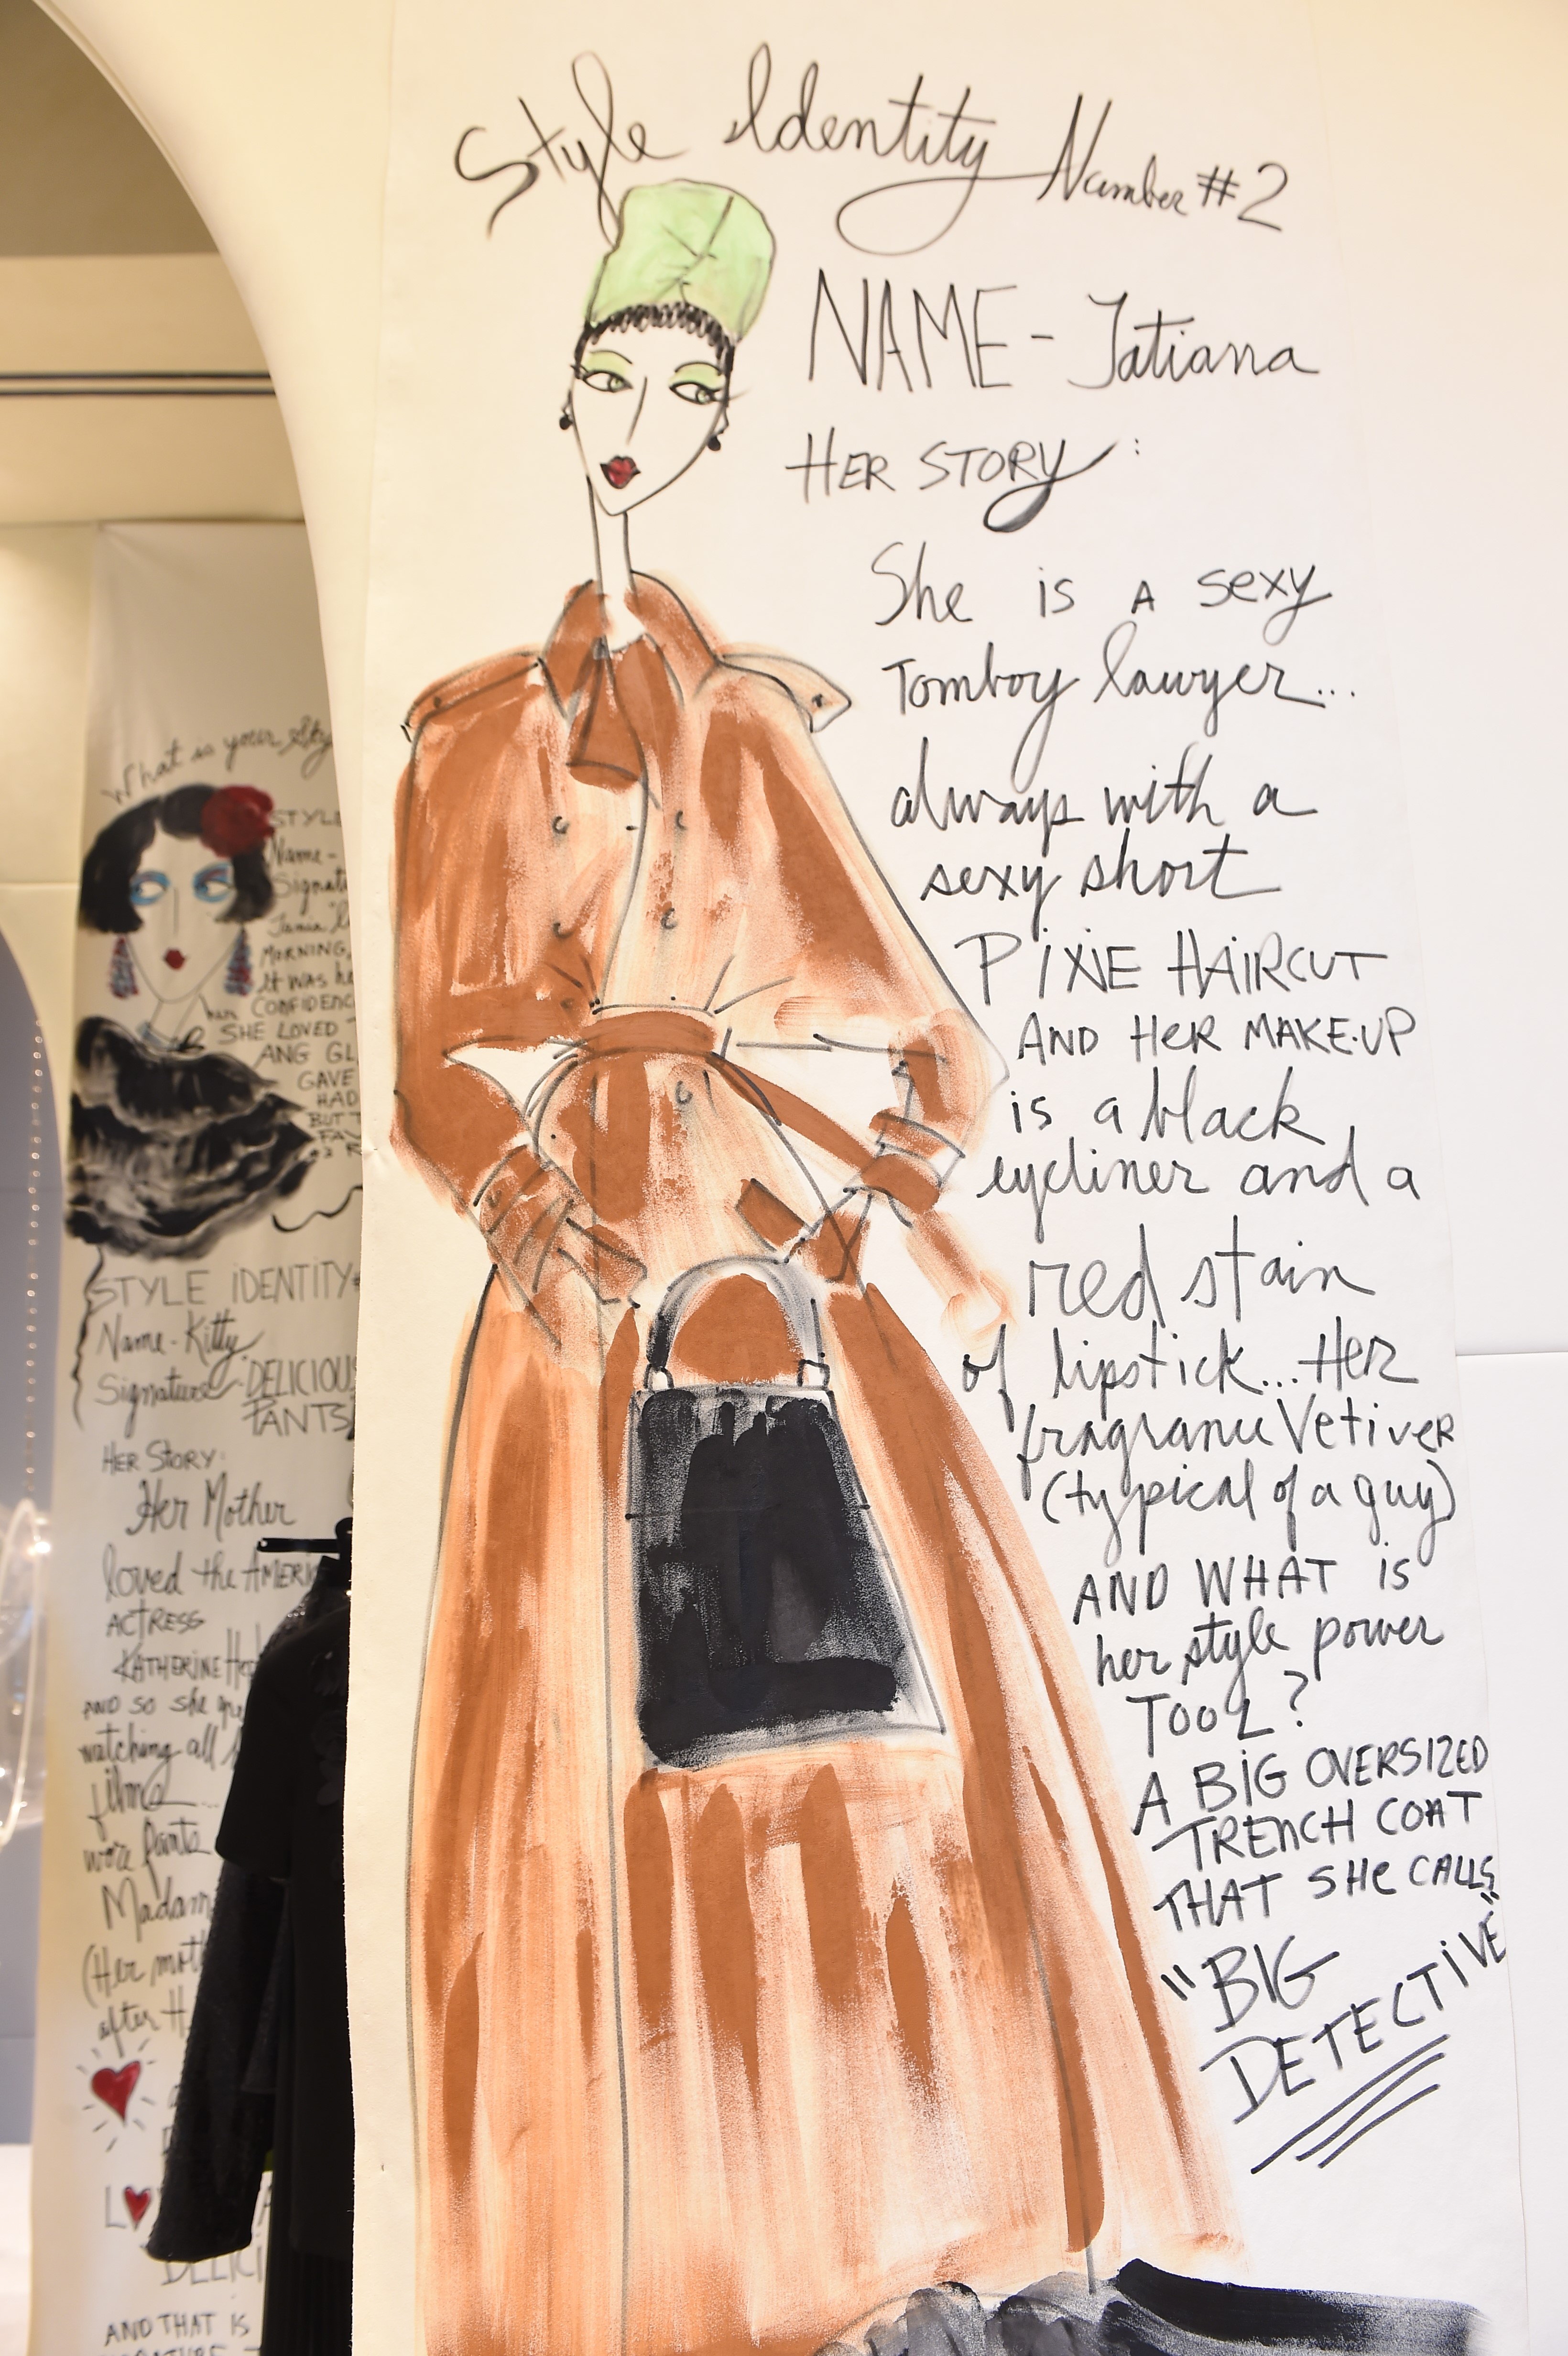 Style Identity Number #2
NAME - Tatiana
HER STORY:
She is A sexy
Tomboy lawyer...
always with a
sexy short
PIXIE HAIRCUT
AND HER MAKE-UP
is a black
eyeliner and a
red stain
of lipstick... Her
fragrance Vetiver
(typical of a guy)
AND WHAT is
her style power
TOOL?
A BIG OVERSIZED
TRENCH COAT
THAT SHE CALLS
"BIG
DETECTIVE"
What is your
STYLE
Name -
MORNING,
It was
CONFIDENC
SHE LOVED
ANG GL
GAVE
HAD
BUT
STYLE IDENTITY
Name - Kitty
Signature - DELICIOUS
PANTS
HER STORY:
Her Mother
loved the AMERI
ACTRESS
KATHERINE
AND so she
watching all
films...
wore pants
Madam
(Her moth
after H
DELICI
AND THAT IS